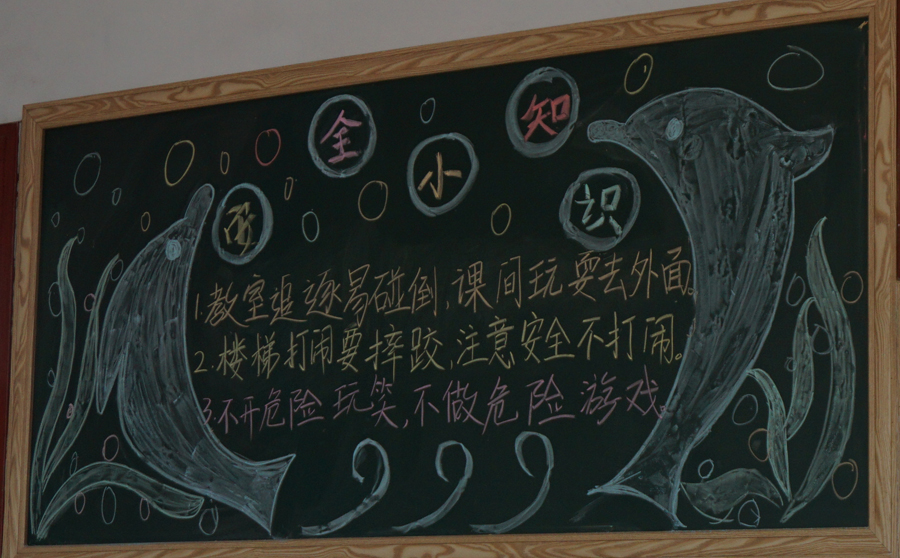 安全小知识
1.教室追逐易碰倒,课间玩耍去外面。
2.楼梯打闹要摔跤,注意安全不打闹。
3.不开危险玩笑,不做危险游戏。